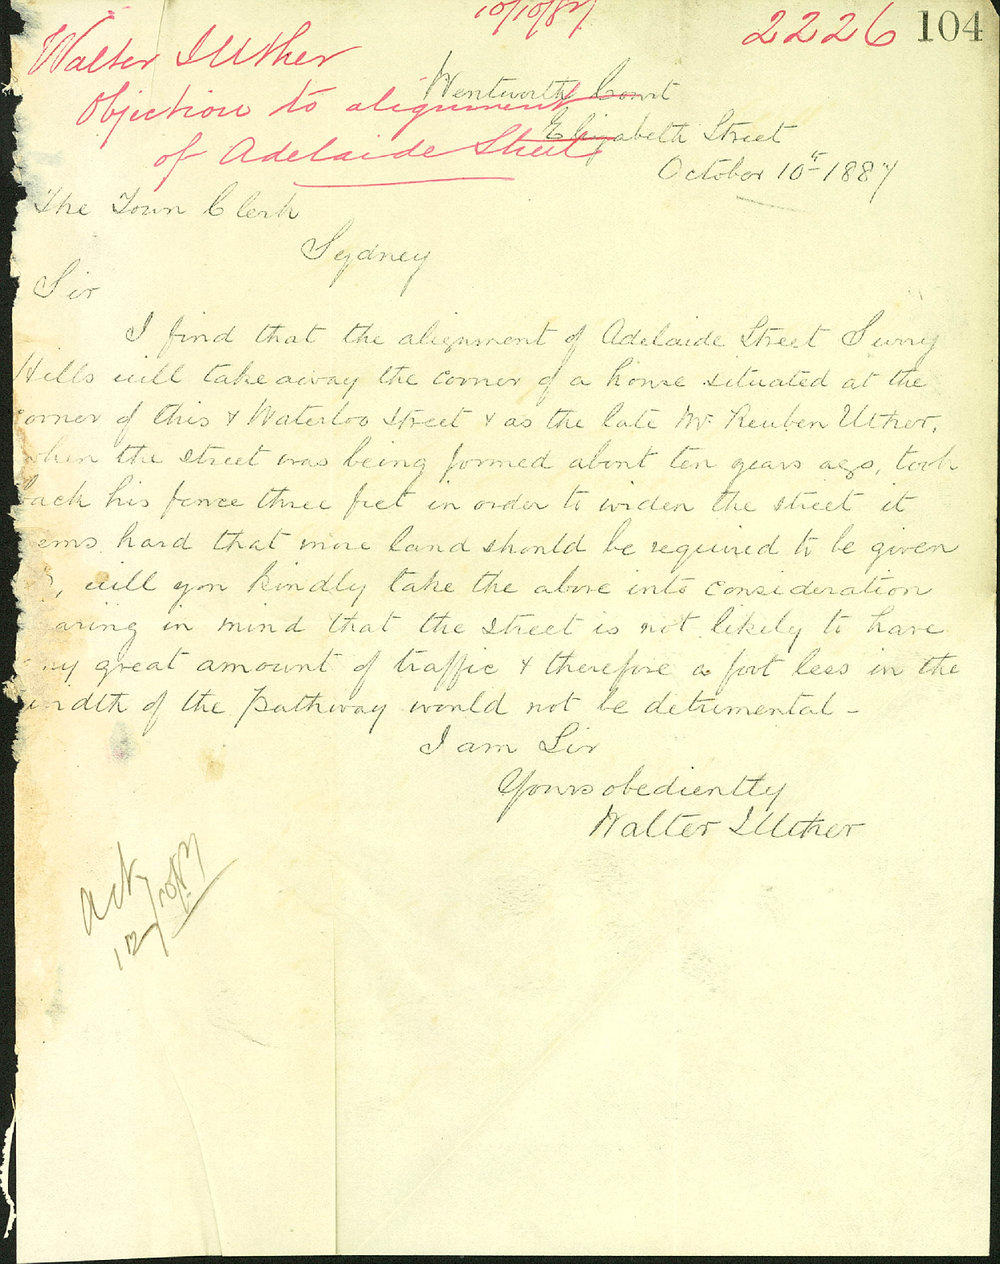 10/10/87
2226 104
Walter I Uther
Objection to alignment
of Adelaide Street
Wentworth Court
Elizabeth Street
October 10th 1887
The Town Clerk
Sydney
Sir
I find that the alignment of Adelaide Street Surry
Hills will take away the corner of a house situated at the
orner of this & Waterloo Street & as the late Mr Reuben Uther,
when the street was being formed about ten years ago, took
back his fence three feet in order to widen the street it
ems hard that more land should be required to be given
, will you kindly take the above into consideration
aring in mind that the street is not likely to have
ny great amount of traffic & therefore a foot less in the
width of the pathway would not be detrimental -
I am Sir
Yours obediently
Walter I Uther
12/10/87